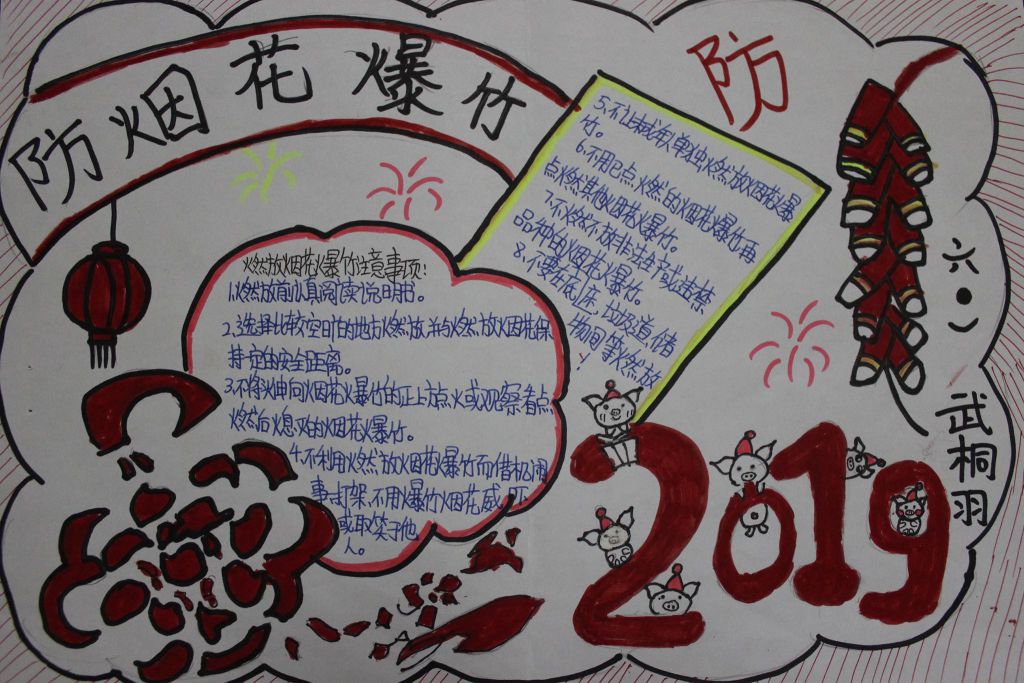 防烟花爆竹
防
燃放烟花爆竹注意事项:
1.燃放前认真阅读说明书。
2.选择比较空旷的地方燃放并与燃放烟花保
持一定的安全距离。
3.不将火种向烟花爆竹的正上方点火或观察着点
燃后熄灭的烟花爆竹。
4.不利用燃放烟花爆竹而借机闹
事打架,不用爆竹烟花威吓
或取笑于他
人。
5.不让成年人单独燃放烟花爆
竹。
6.不用已点燃的烟花爆竹再
点燃其他烟花爆竹。
7.不燃不放非法生产或违禁
品种的烟花爆竹。
8.不要在底座、垃圾道、储
物间等燃放
!
六(•)
武桐羽
2019